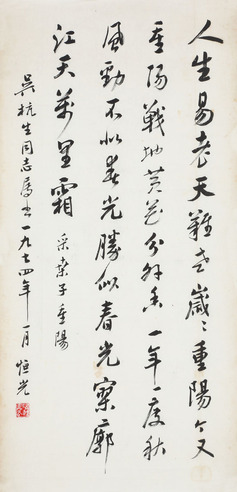 人生易老天難老歲〻重陽今又
重陽戰地黃花分外香一年一度秋
風勁不似春光勝似春光寥廓
江天萬里霜 采桒子重陽
吳杭生同志屬书一九七四年一月 恒光